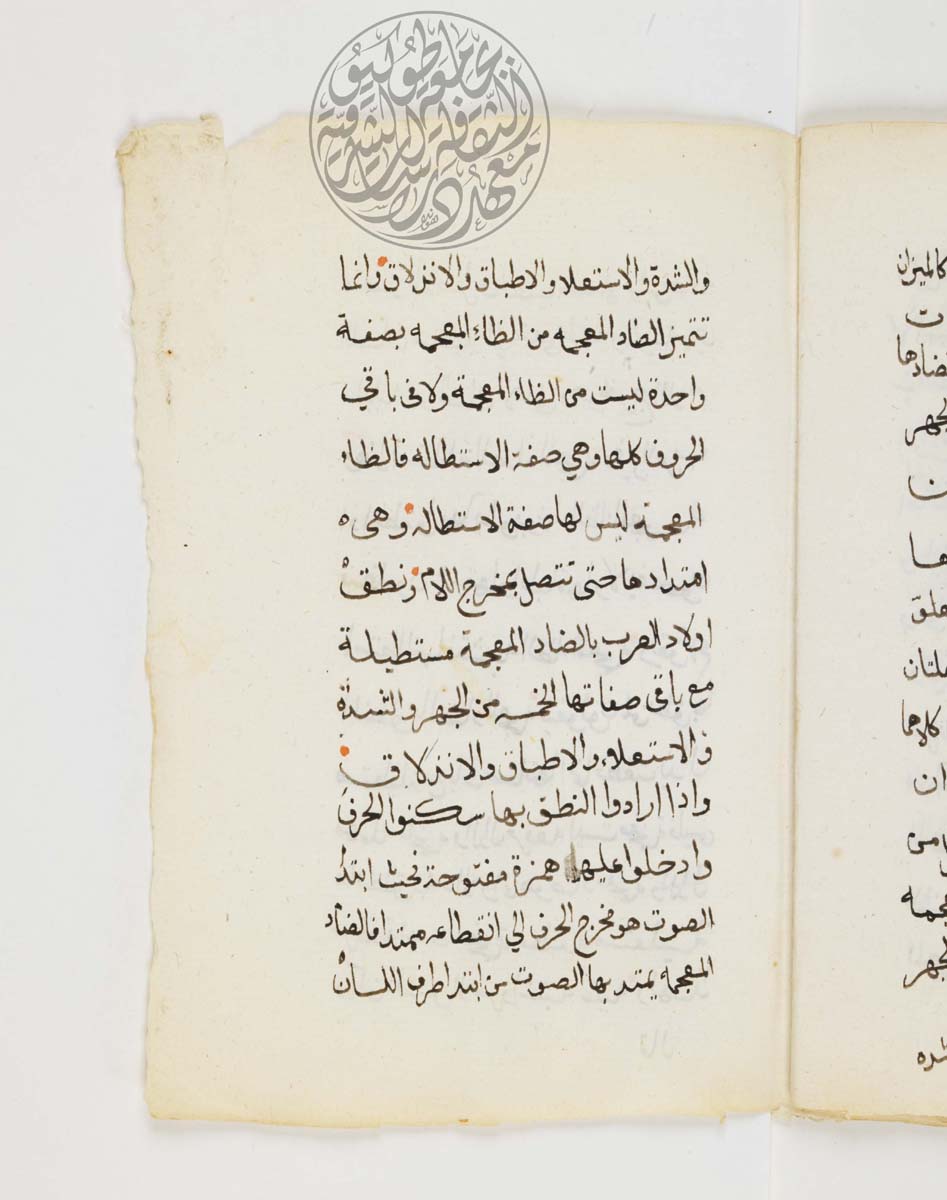 كالميزان
ت
ضادها
ن
ها
كلاهما
دان
من
شده
والشدة والاستعلا والاطباق والانزلاق وانما
تتميز الضاد المعجمه من الظاء المعجمه بصفة
واحدة ليست من الظاء المعجمة ولا فى باقي
الحروف كلها وهي صفة الاستطاله فالظاء
المعجمة ليس لها صفة الاستطاله وهى ه
امتدادها حتى تتصل بمخرج اللام ونطق
اولاد العرب بالضاد المعجمة مستطيلة
مع باقى صفاتها الخمسه من الجهر والشدة
والاستعلاء والاطباق والانزلاق
واذا ارادوا النطق بها سكنوا الحرف
وادخلوا عليها همزة مفتوحة فحيث ابتدا
الصوت هو مخرج الحرف الي انقطاعه ممتدا فالضاد
المعجمه يمتد بها الصوت من ابتدا طرف اللسان
جامعة طوكيو
معهد دراسات الثقافة الشرقية